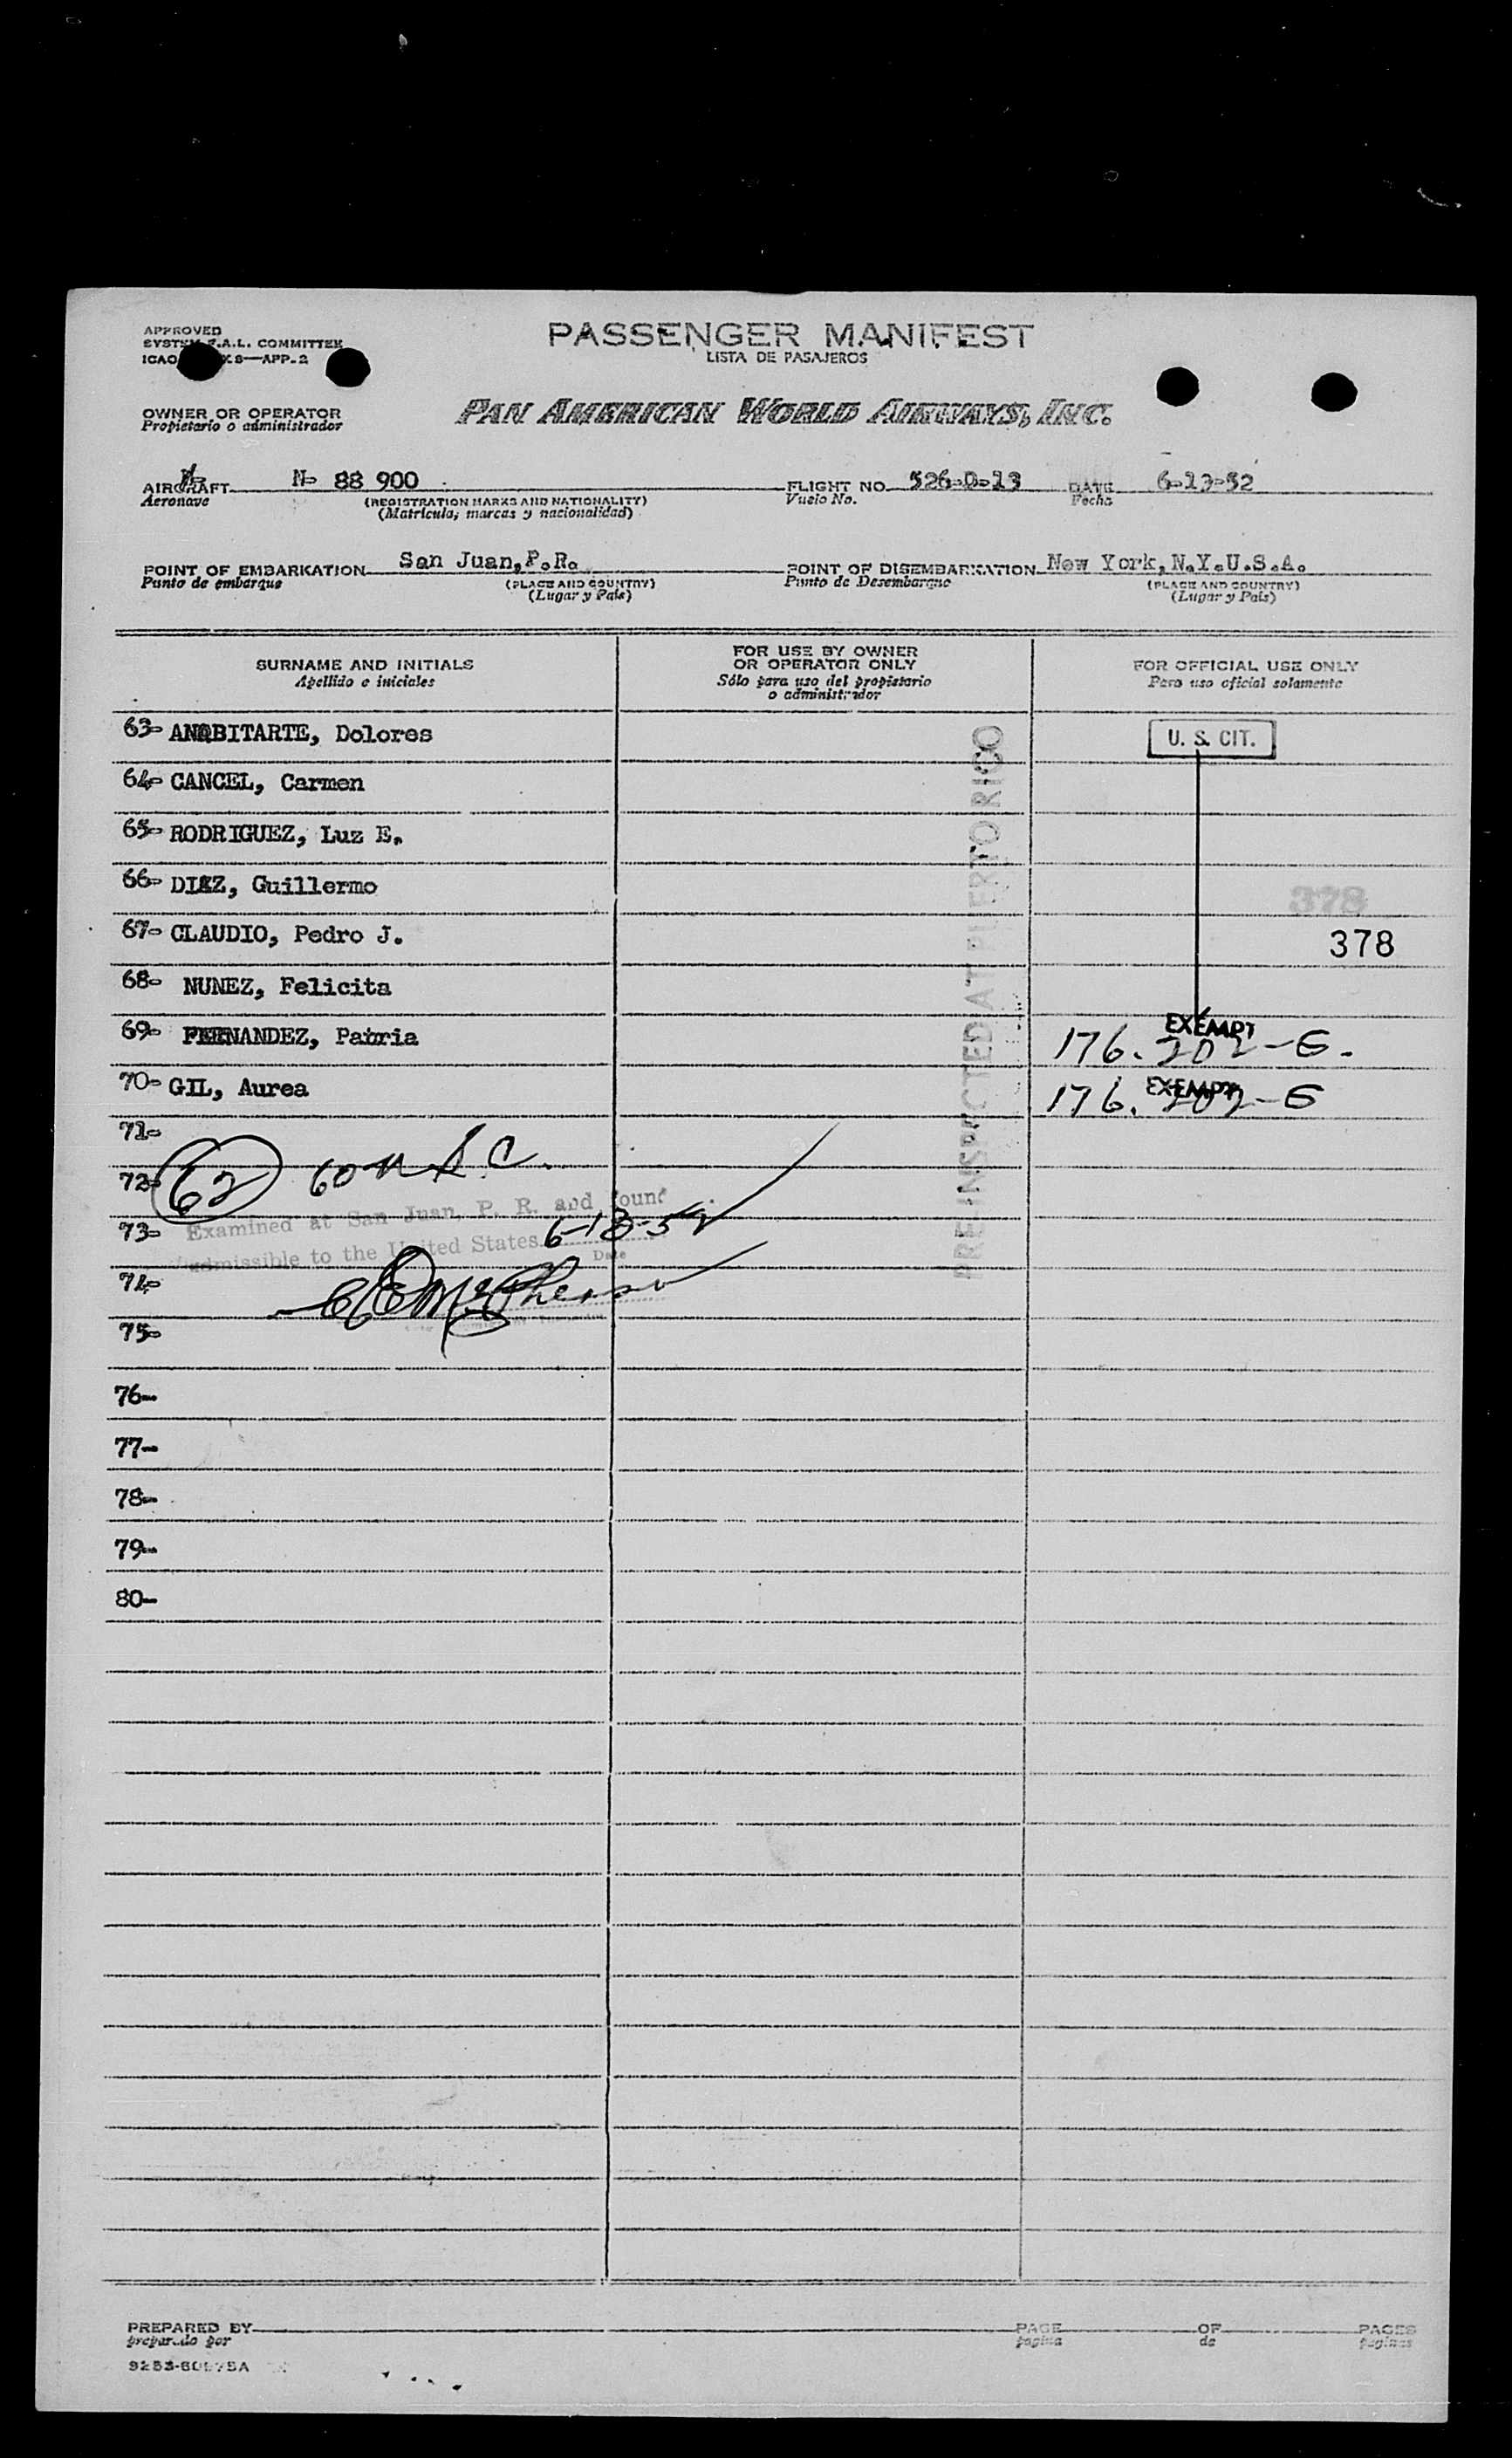 APPROVED
SYSTEM F.A.L. COMMITTEE
ICAO 8—APP. 2
PASSENGER MANIFEST
LISTA DE PASAJEROS
OWNER OR OPERATOR
Propietario o administrador
PAN AMERICAN WORLD AIRWAYS, INC.
AIRCRAFT N- 88 900 FLIGHT NO. 526-D-13 DATE 6-13-52
Aeronave (REGISTRATION MARKS AND NATIONALITY) Vuelo No. Fecha
(Matrícula, marcas y nacionalidad)
POINT OF EMBARKATION San Juan, P.R. POINT OF DISEMBARKATION New York, N.Y.U.S.A.
Punto de embarque (PLACE AND COUNTRY) Punto de Desembarque (PLACE AND COUNTRY)
(Lugar y País) (Lugar y País)
SURNAME AND INITIALS
Apellido e iniciales
FOR USE BY OWNER
OR OPERATOR ONLY
Sólo para uso del propietario
o administrador
FOR OFFICIAL USE ONLY
Para uso oficial solamente
63- ANABITARTE, Dolores U. S. CIT.
64- CANCEL, Carmen
65- RODRIGUEZ, Luz E.
66- DIAZ, Guillermo 378
67- CLAUDIO, Pedro J. 378
68- NUNEZ, Felicita
69- FERNANDEZ, Patria EXEMPT 176.202-E.
70- GIL, Aurea EXEMPT 176.202-E
PRE-INSPECTED AT PUERTO RICO
71-
72- 62 60 U.S.C.
73- Examined at San Juan, P. R. and found
admissible to the United States 6-13-52
Date
74- McPherson
75-
76-
77-
78-
79-
80-
PREPARED BY PAGE OF PAGES
preparado por pagina de paginas